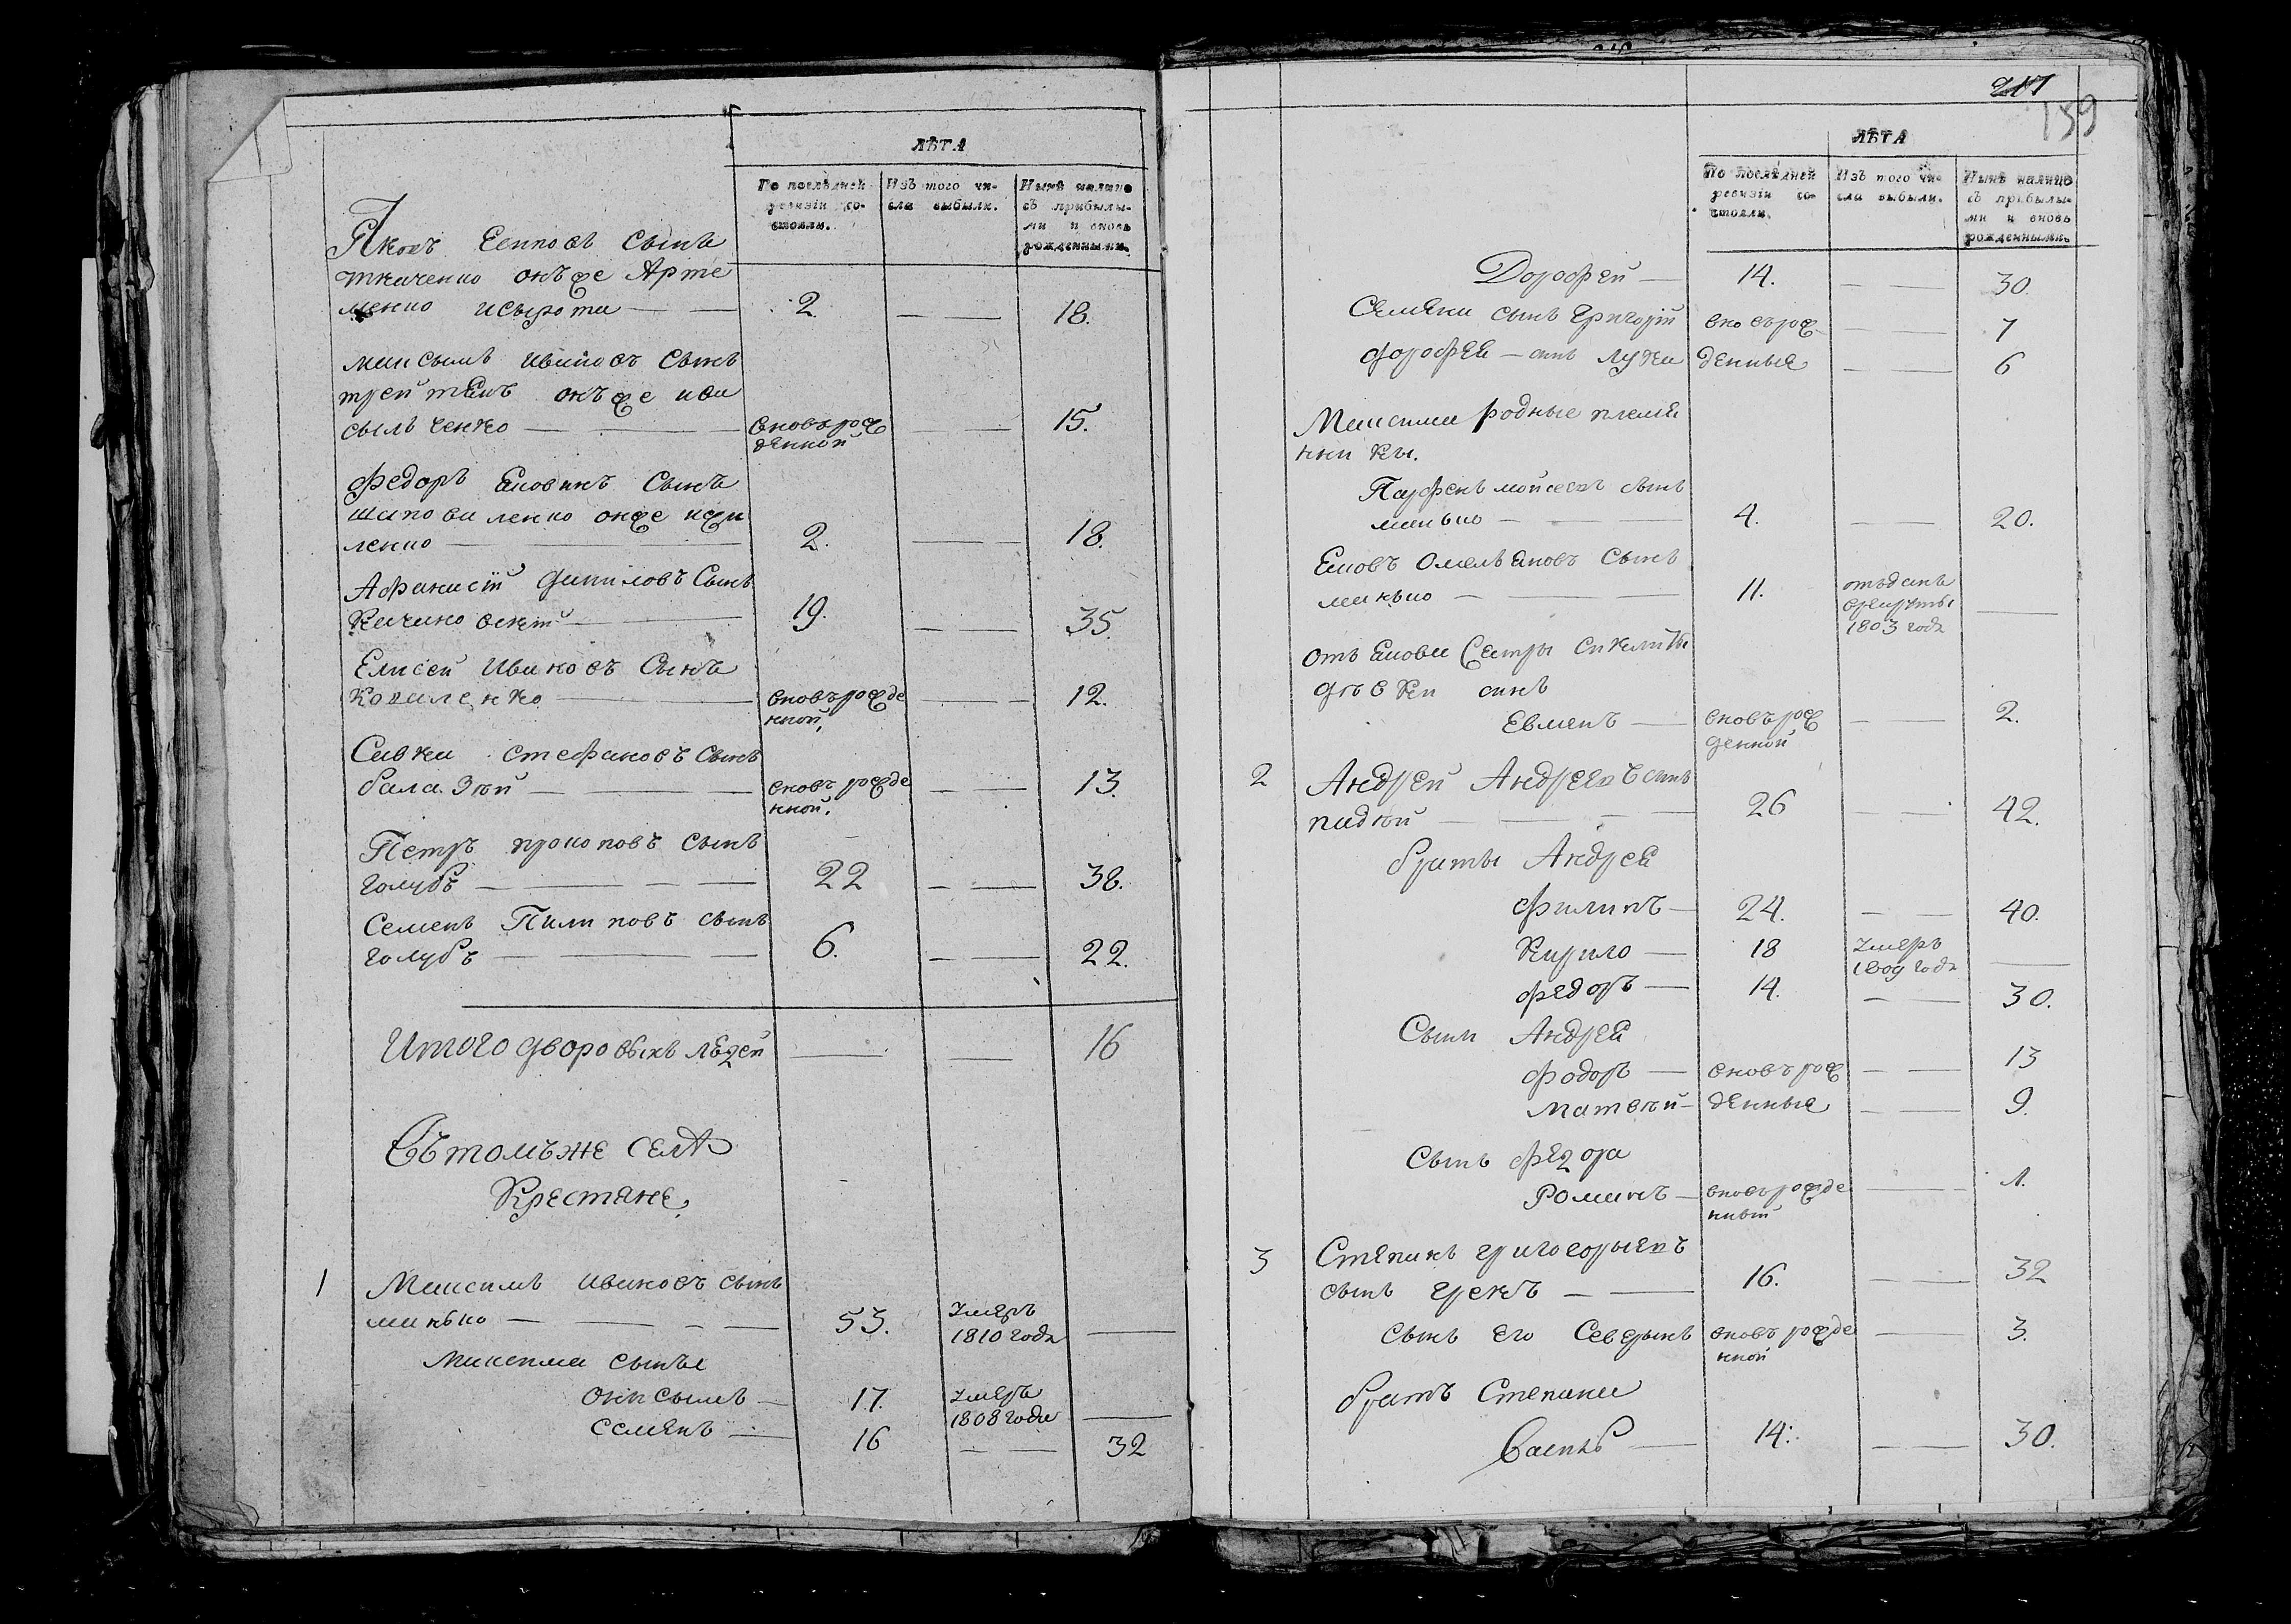 ЛѢТА
По послѣдней ревизіи состояли.
Изъ того числа выбыли.
Нынѣ налицо съ прибылыми и вновь рожденными.
Яковъ Есиповъ сынъ
ткаченко онъже Арте
менко исырота — — 2. — — 18.
Максымъ Ивановъ сынъ
онъже
сыльченко — — вноворож — — 15.
денной
Федоръ Яковивъ Сынъ
шаповаленко онже
ленко — 2. — — 18.
Афанасій даниловъ Сынъ
— 19. — — 35.
Елисей Ивановъ Сынъ
Коваленко — вновърожде — — 12.
нной,
Савка Стефановъ Сынъ
бала — — вновъ рожде — — 13.
нной.
Петръ прокоповъ Сынъ
голубъ — — — — 22 — — 38.
Семенъ Пилиповъ сынъ
голубъ — — — 6. — — 22.
Итого дворовыхъ людей — — 16
Въ томъже селѣ
Крестяне.
1 Максимъ Ивановъ сынъ
манько — — — — 53. умеръ —
1810 года
Максима сынъя
Онисымъ — 17. умеръ
1808 года —
Семенъ — 16 — — 32
217
139
ЛѢТА
По послѣдней ревизіи состояли.
Изъ того числа выбыли.
Нынѣ налицо съ прибылыми и вновь рожденными.
Дорофей — 14. — — 30.
Семена сынъ Григорій вновърож — — 7
дорофея — сынъ Лука денные — — 6
Максима родные племя
нники.
Парфенъ мойсеевъ сынъ
манько — — — 4. — — 20.
Яковъ Омеляновъ Сынъ
манько — — — 11. отъданъ
врекруты —
1803 года
отъ Якова Сестры
дѣвки синъ
Евменъ — вновъ рож — — 2.
денной
2 Андрей Андреевъ сынъ
— — — — 26 — — 42.
браты Андрея
Филипъ — 24. — — 40.
Кирило — 18 умеръ
1809 года —
федоръ — 14. — — 30.
Сыни Андрея
федоръ — вновъ рож — — 13
Матвѣй — денные — — 9.
Сынъ федора
Романъ — вновърожде — 1.
нный
3 Степанъ григорьевъ
сынъ грекъ — — 16. — — 32
сынъ его Северынъ вновъ рожде — 3.
нной
братъ Степана
Василь — 14. — — 30.